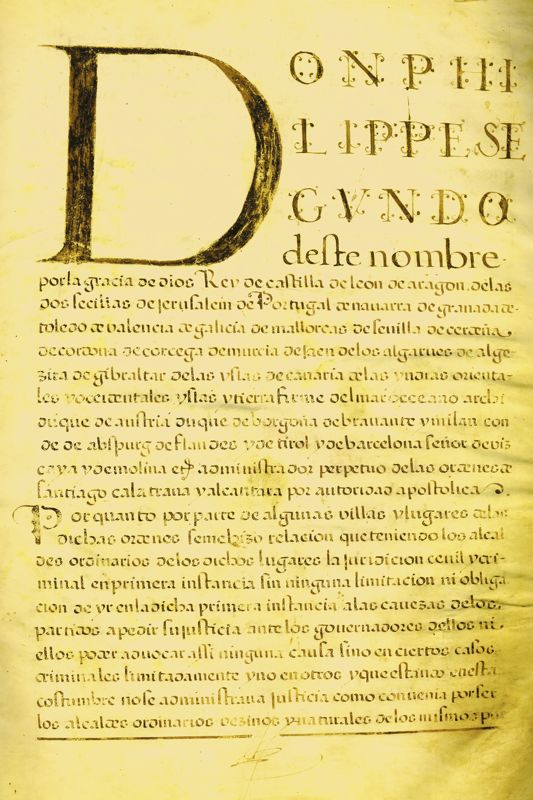 DON PHI
LIPPE SE
GVNDO
deste nombre
por la gracia de dios Rey de castilla de leon de aragon, delas
dos secilias de Jerusalem de Portugal de nauarra de granada de
toledo de valencia de galicia de mallorcas de seuilla de cerdeña
de cordoua de corcega de murcia de Jaen delos algarues de alge
zira de gibraltar delas yslas de canaria delas yndias orienta-
les y occidentales yslas y tierra firme del mar occeano archi
duque de austria duque de borgoña de brauante y milan con
de de abspurg de flandes y de tirol y de barcelona señor de viz
caya y de molina etc administrador perpetuo delas ordenes de
santiago calatraua y alcantara por autoridad apostolica
Por quanto por parte de algunas villas y lugares delas
dichas ordenes se me hizo relacion que teniendo los alcal
des ordinarios de los dichos lugares la Juridicion ceuil y cri-
minal en primera instancia sin ninguna limitacion ni obliga
cion de yr en la dicha primera instancia a las cauezas delos
partidos a pedir su justicia ante los gouernadores dellos ni
ellos poder aduocar assi ninguna causa sino en ciertos casos
criminales limitadamente y no en otros y que estando en esta
costumbre no se administraua Justicia como conuenia por ser
los alcaldes ordinarios vezinos y naturales de los mismos